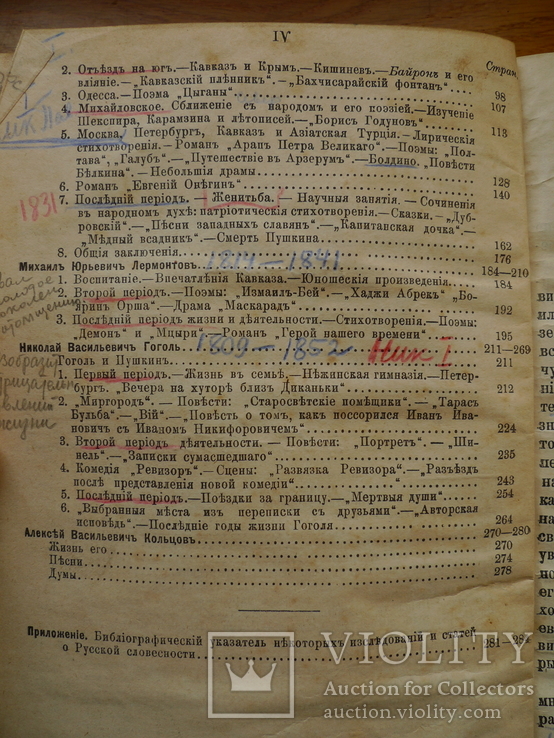 IV
Стран.
2. Отъѣздъ на югъ.—Кавказъ и Крымъ.—Кишиневъ.—Байронъ и его
вліяніе.—„Кавказскій плѣнникъ“.—„Бахчисарайскій фонтанъ“ 98
3. Одесса.—Поэма „Цыганы“ 107
4. Михайловское. Сближеніе съ народомъ и его поэзіей.—Изученіе
Шекспира, Карамзина и лѣтописей.—„Борисъ Годуновъ“ 113
5. Москва, Петербургъ, Кавказъ и Азіатская Турція.—Лирическія
стихотворенія.—Романъ „Арапъ Петра Великаго“.—Поэмы: „Пол-
тава“, „Галубъ“.—„Путешествіе въ Арзерумъ“.—Болдино. „Повѣсти
Бѣлкина“.—Небольшія драмы
6. Романъ „Евгеній Онѣгинъ“ 128
7. Послѣдній періодъ.—Женитьба.—Научныя занятія.—Сочиненія 140
въ народномъ духѣ: патріотическія стихотворенія.—Сказки.—„Ду-
бровскій“.—„Пѣсни западныхъ славянъ“.—„Капитанская дочка“.—
„Мѣдный всадникъ“.—Смерть Пушкина 162
8. Общія заключенія 176
1831
Михаилъ Юрьевичъ Лермонтовъ 1814–1841 184—210
1. Воспитаніе.—Впечатлѣнія Кавказа.—Юношескія произведенія 184
2. Второй періодъ.—Поэмы: „Измаилъ-Бей“.—„Хаджи Абрекъ“ „Бо-
яринъ Орша“.—Драма „Маскарадъ“ 192
3. Послѣдній періодъ жизни и дѣятельности.—Стихотворенія.—Поэмы:
„Демонъ“ и „Мцыри“.—Романъ „Герой нашего времени“ 195
Николай Васильевичъ Гоголь 1809–1852 Ник I 211—269
Гоголь и Пушкинъ 211
1. Первый періодъ.—Жизнь въ семьѣ.—Нѣжинская гимназія.—Петер-
бургъ.—„Вечера на хуторѣ близъ Диканьки“ 212
2. „Миргородъ“.—Повѣсти: „Старосвѣтскіе помѣщики“.—„Тарасъ
Бульба“.—„Вій“.—„Повѣсть о томъ, какъ поссорился Иванъ Ива-
новичъ съ Иваномъ Никифоровичемъ“ 224
3. Второй періодъ дѣятельности.—Повѣсти: „Портретъ“.—„Ши-
нель“.—„Записки сумасшедшаго“ 235
4. Комедія „Ревизоръ“.—Сцены: „Развязка Ревизора“.—„Разъѣздъ
послѣ представленія новой комедіи“ 243
5. Послѣдній періодъ.—Поѣздки за границу.—„Мертвыя души“ 254
6. „Выбранныя мѣста изъ переписки съ друзьями“.—„Авторская
исповѣдь“.—Послѣдніе годы жизни Гоголя 264
Алексѣй Васильевичъ Кольцовъ 270—280
Жизнь его 270
Пѣсни 274
Думы 278
Приложеніе. Библіографическій указатель нѣкоторыхъ изслѣдованій и статей
о Русской словесности 281—284
VIOLITY
Auction for Collectors
auction.violity.com